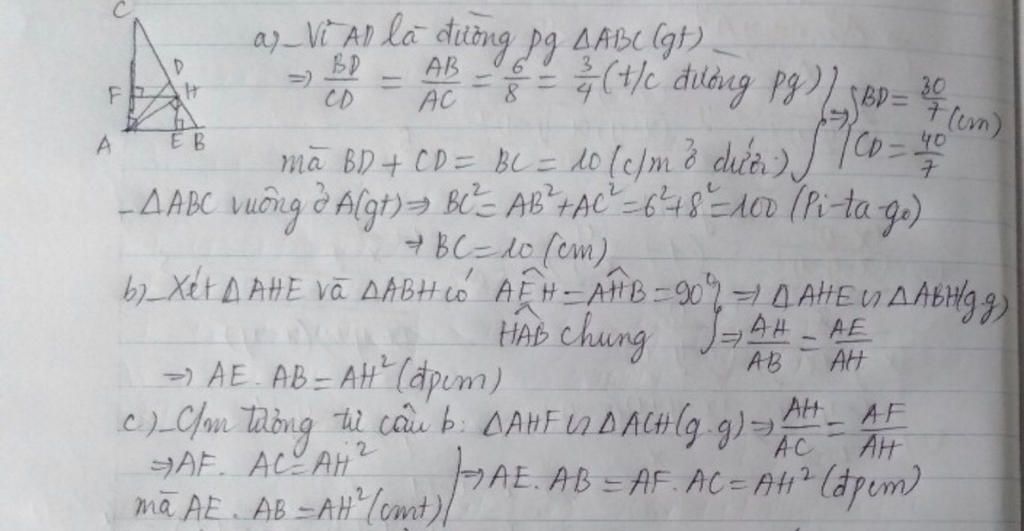 C
D
F H
A E B
a) - Vì AD là đường pg ΔABC (gt)
⇒ BD/CD = AB/AC = 6/8 = 3/4 (t/c đường pg) } ⇒ { BD = 30/7 (cm)
mà BD + CD = BC = 10 (c/m ở dưới) CD = 40/7
- ΔABC vuông ở A (gt) ⇒ BC² = AB² + AC² = 6² + 8² = 100 (Pi-ta-go)
⇒ BC = 10 (cm)
b) - Xét ΔAHE và ΔABH có AÊH = AĤB = 90° } ⇒ ΔAHE ∽ ΔABH (g.g)
HÂB chung ⇒ AH/AB = AE/AH
⇒ AE . AB = AH² (đpcm)
c) - C/m tương tự câu b: ΔAHF ∽ ΔACH (g.g) ⇒ AH/AC = AF/AH
⇒ AF . AC = AH² } ⇒ AE . AB = AF . AC = AH² (đpcm)
mà AE . AB = AH² (cmt)